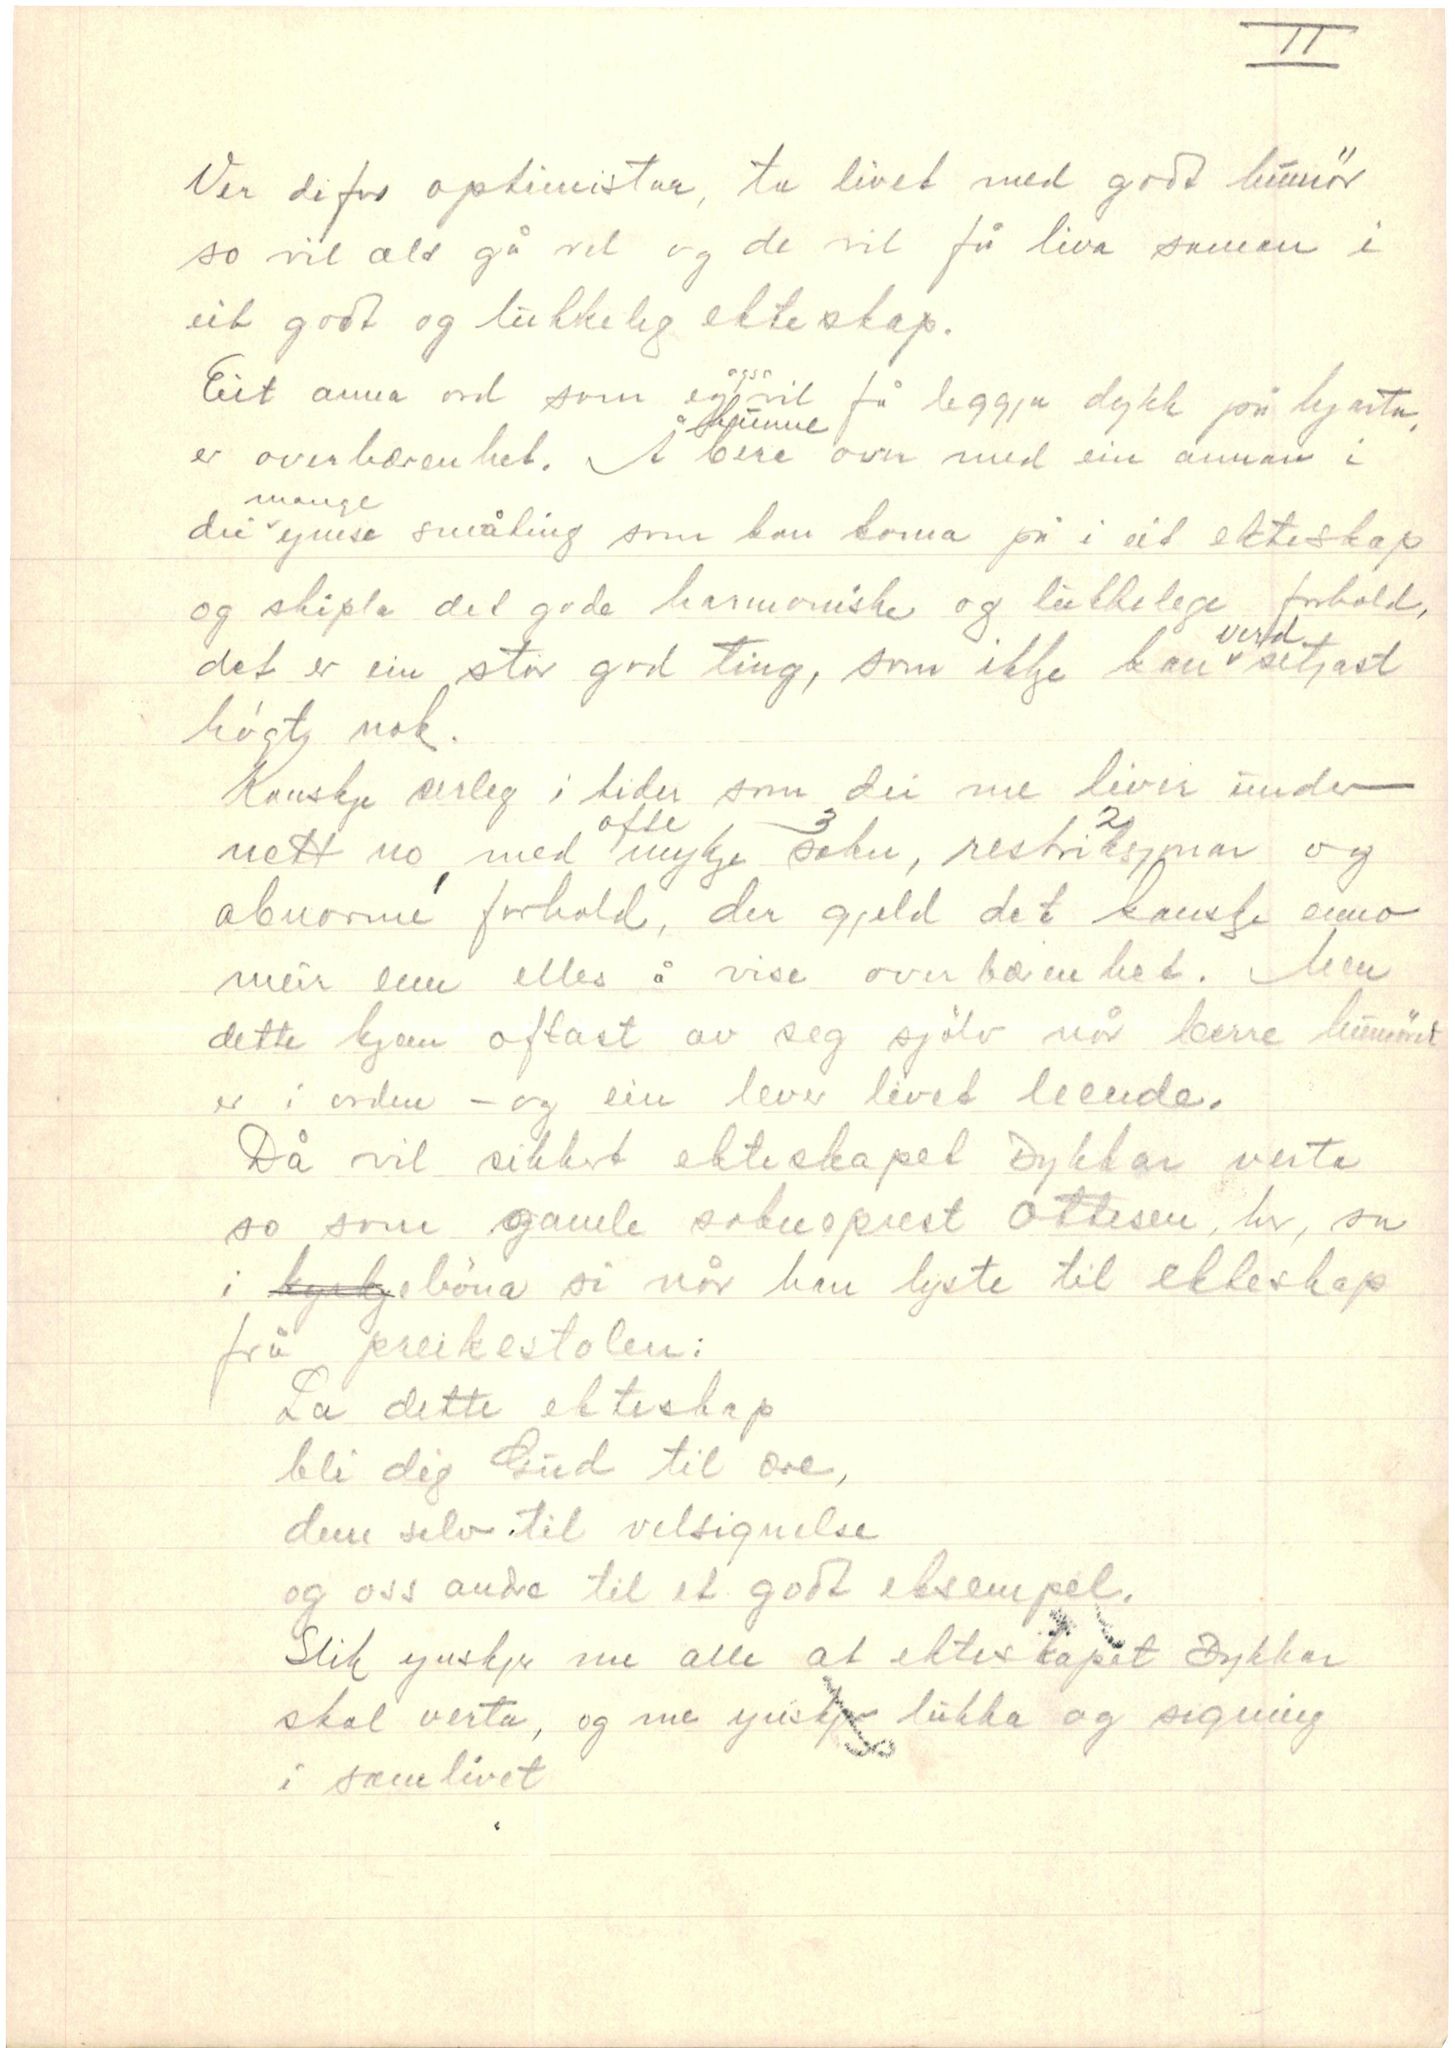 II
Ver difor optimistar, ta livet med godt humör
so vil alt gå vel og de vil få liva saman i
eit godt og lukkeleg ekteskap.
Eit anna ord som eg også vil få leggja dykk på hjarta,
er overbærenhet. Å kunne bere over med ein annan i
dei mange ymse småting som kan koma på i eit ekteskap
og skipla det gode harmoniske og lukkelege forhold,
det er ein stor god ting, som ikkje kan verd setjast
högt nok.
Kanskje serleg i tider som dei me liver under
nett no, med ofte mykje 3 sakn, restriksjonar 2 og
abnorme 1 forhold, der gjeld det kanskje enno
meir enn elles å vise overbærenhet. Men
dette kjem oftast av seg sjölv når berre humöret
er i orden – og ein lever livet leende.
Då vil sikkert ekteskapet Dykkar verta
so som gamle sokneprest Ottesen, her, sa
i kyrkjeböna si når han lyste til ekteskap
frå preikestolen:
La dette ekteskap
bli dig Gud til ære,
dem selv til velsignelse
og oss andre til et godt eksempel.
Slik ynskjer me alle at ekteskapet Dykkar
skal verta, og me ynskje lukka og signing
i samlivet